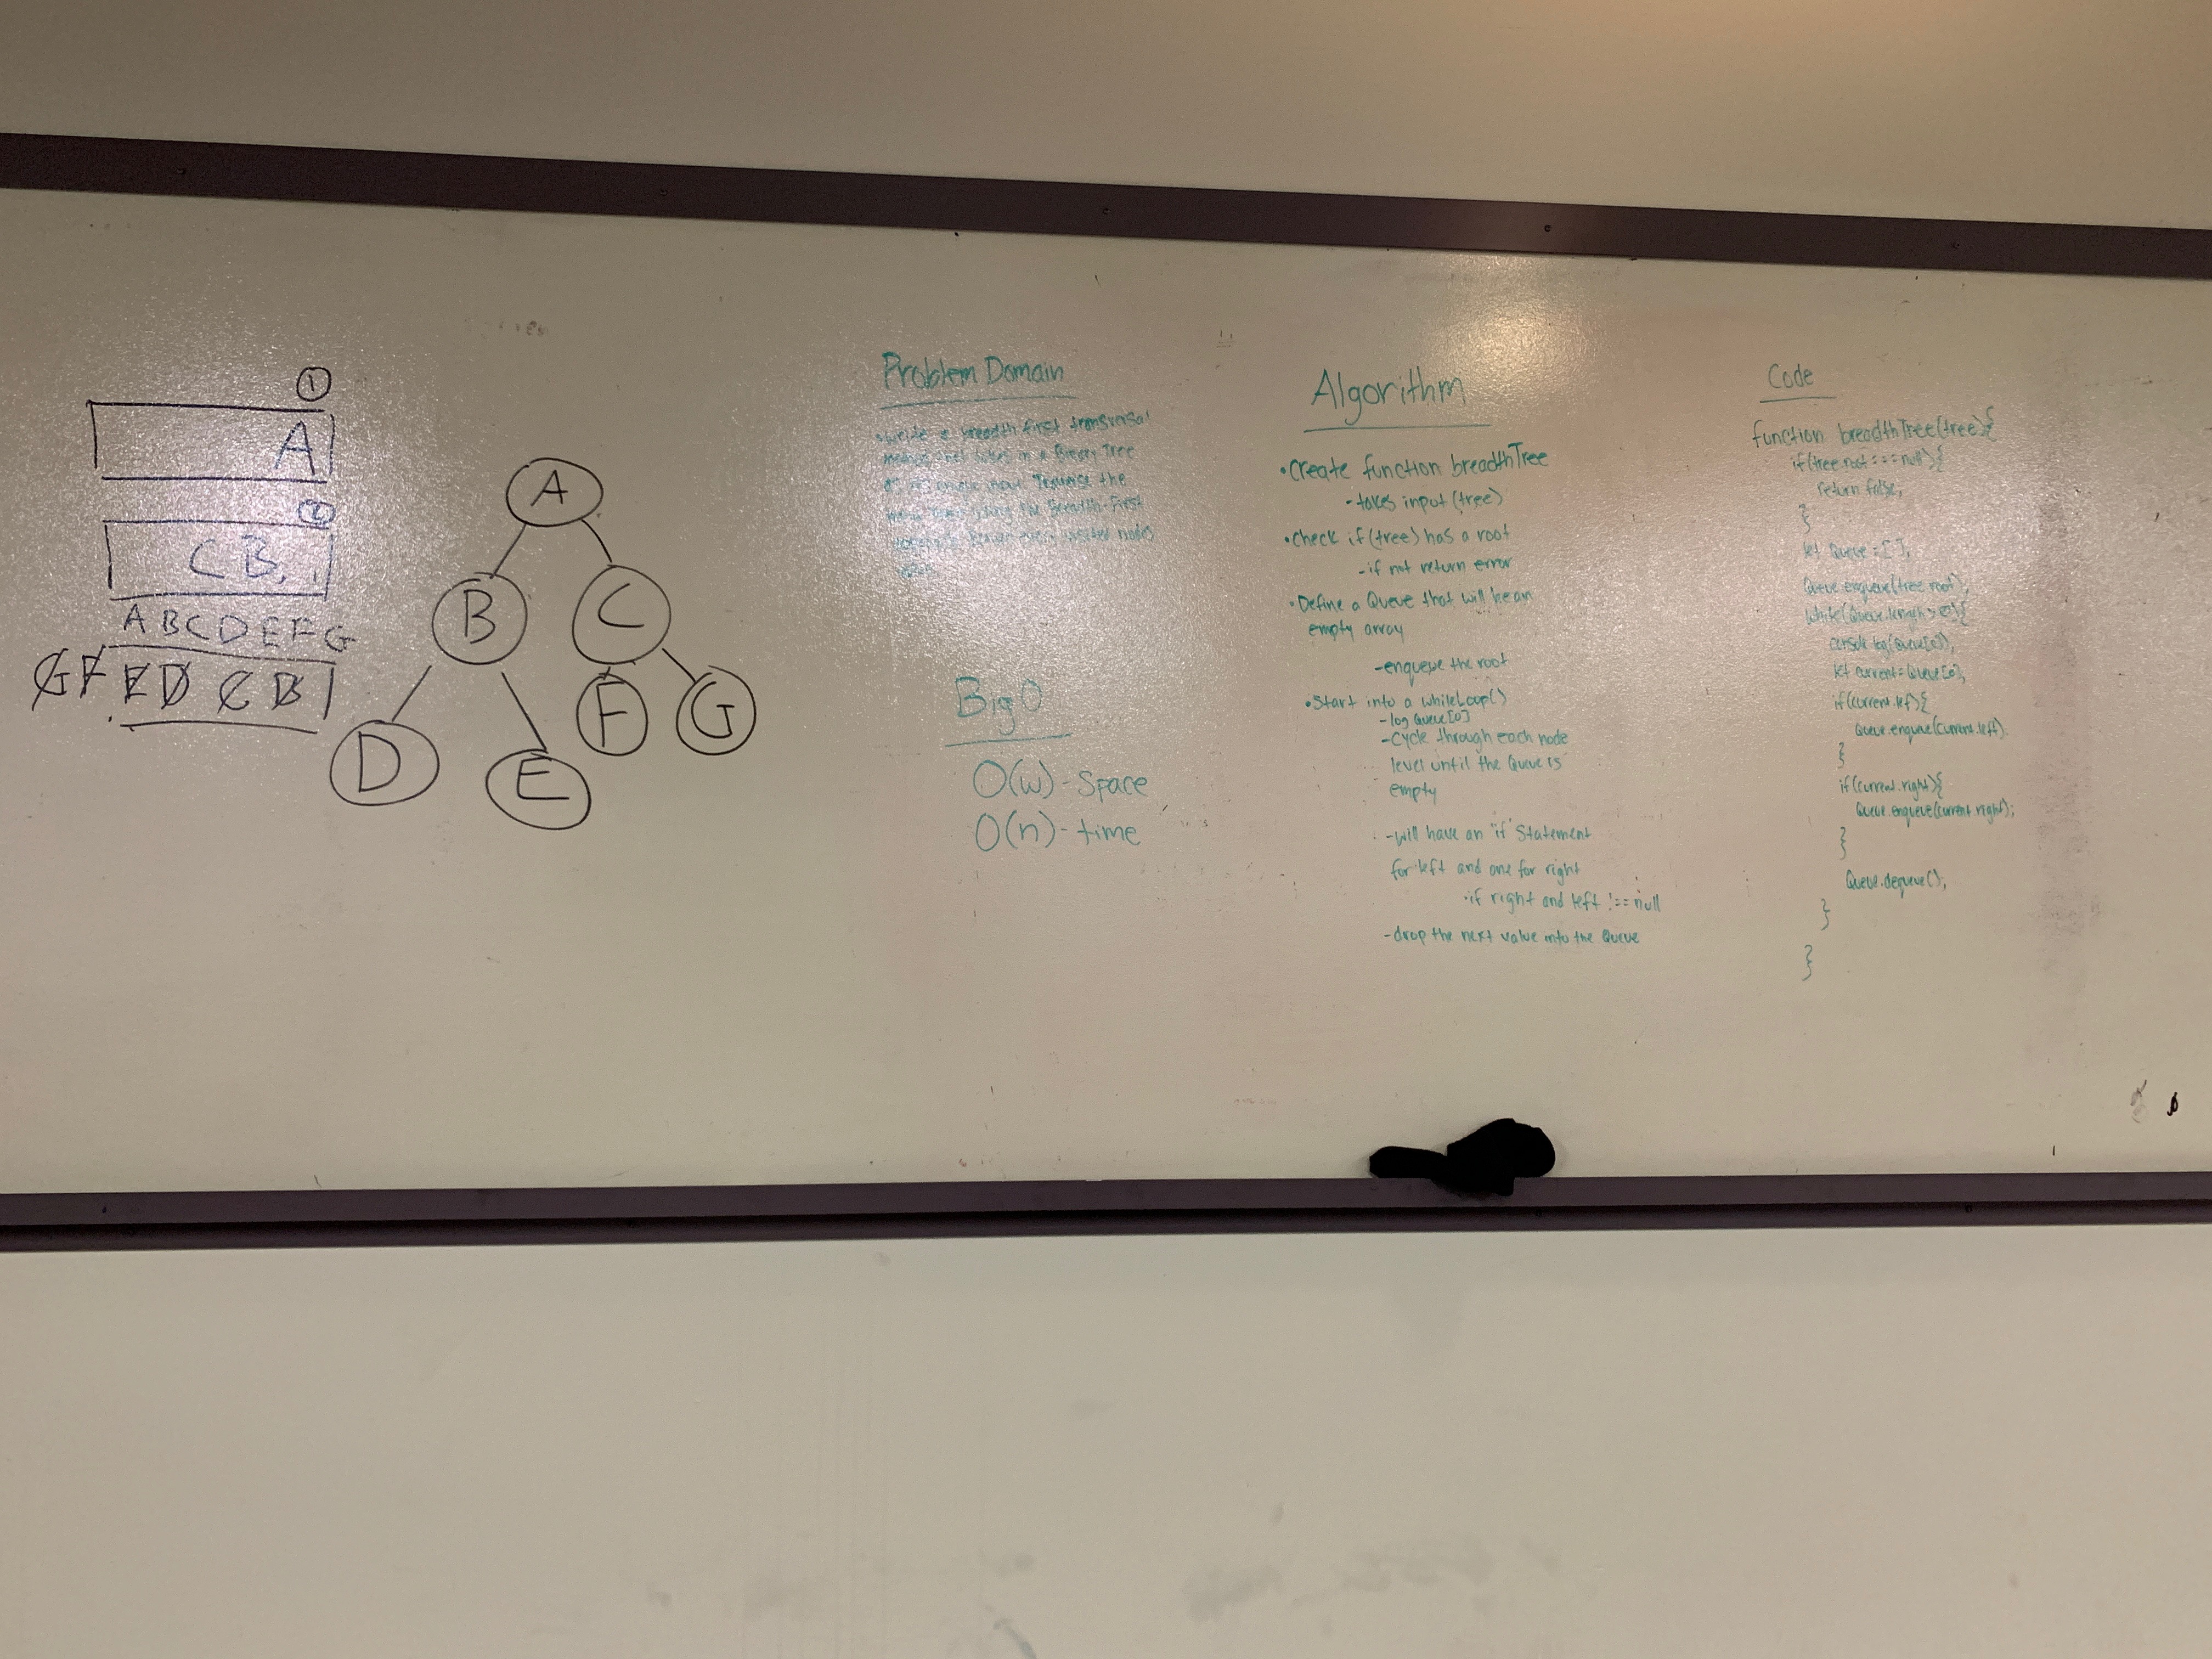 ①
A
②
C B
A B C D E F G
G F E D C B
A
B
C
D
E
F
G
Problem Domain
write a breadth first transversal
method that takes in a Binary Tree
as its unique input Traverse the
the Breadth-First
every visited nodes
Big O
O(w) - Space
O(n) - time
Algorithm
• Create function breadthTree
- takes input (tree)
• Check if (tree) has a root
- if not return error
• Define a Queue that will be an
empty array
- enqueue the root
• Start into a whileLoop()
- log Queue[0]
- Cycle through each node
level until the Queue is
empty
- will have an "if" Statement
for left and one for right
• if right and left !== null
- drop the next value into the Queue
Code
function breadthTree(tree){
if(tree.root === null){
return false;
}
let Queue = [];
Queue.enqueue(tree.root);
while(Queue.length > 0){
console.log(Queue[0]);
let current = Queue[0];
if(current.left){
Queue.enqueue(current.left);
}
if(current.right){
Queue.enqueue(current.right);
}
Queue.dequeue();
}
}